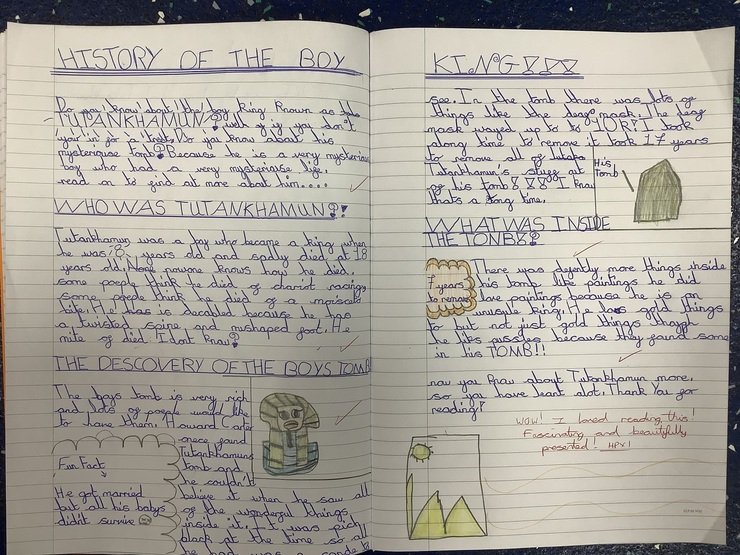 HISTORY OF THE BOY
Do you know about the boy king known as
TUTANKHAMUN? well if if you don't
your in for a treat. Do you know about his
mysteriouse tomb? Because he is a very mysterious
boy who had a very mysteriouse life.
read on to find out more about him....
WHO WAS TUTANKHAMUN?!
Tutankhamun was a boy who became a king when
he was 8 years old and sadly died at 18
years old. nowone knows how he died.
some people think he died of chariot racing,
some people think he died of a
bite. He has is decabled because he has
a twisted spine and mishaped foot. He
mite of died I dont know?
THE DESCOVERY OF THE BOYS TOMB
The boys tomb is very rich
and lots of people would like
to have them. Howard Carter
onece found
Tutankhamuns
tomb and
he couldn't
believe it when he saw all
of the wonderful things
inside it. It was pich
black at the time so all
he had was a
Fun Fact
He got married
but all his babys
didn't survive
KING!!!
see. In the tomb there was lots of
things like the deaf mask. The deaf
mask wayed up to to 10R! I took
along time to remove it took 17 years
to remove all of
Tutankhamun's stuff out
of his tomb!!! I know
thats a long time.
His
tomb
WHAT WAS INSIDE
THE TOMB?
7 years
to remove
There was more things inside
his tomb like paintings he did
love paintings because he is an
unusule king. He gold things
to but not just gold things though
he likes because they found some
in his TOMB!!
now you know about Tutankhamun more.
so you have leant alot. Thank You for
reading!
WOW! I loved reading this!
Fascinating and beautifully
presented! HPx1